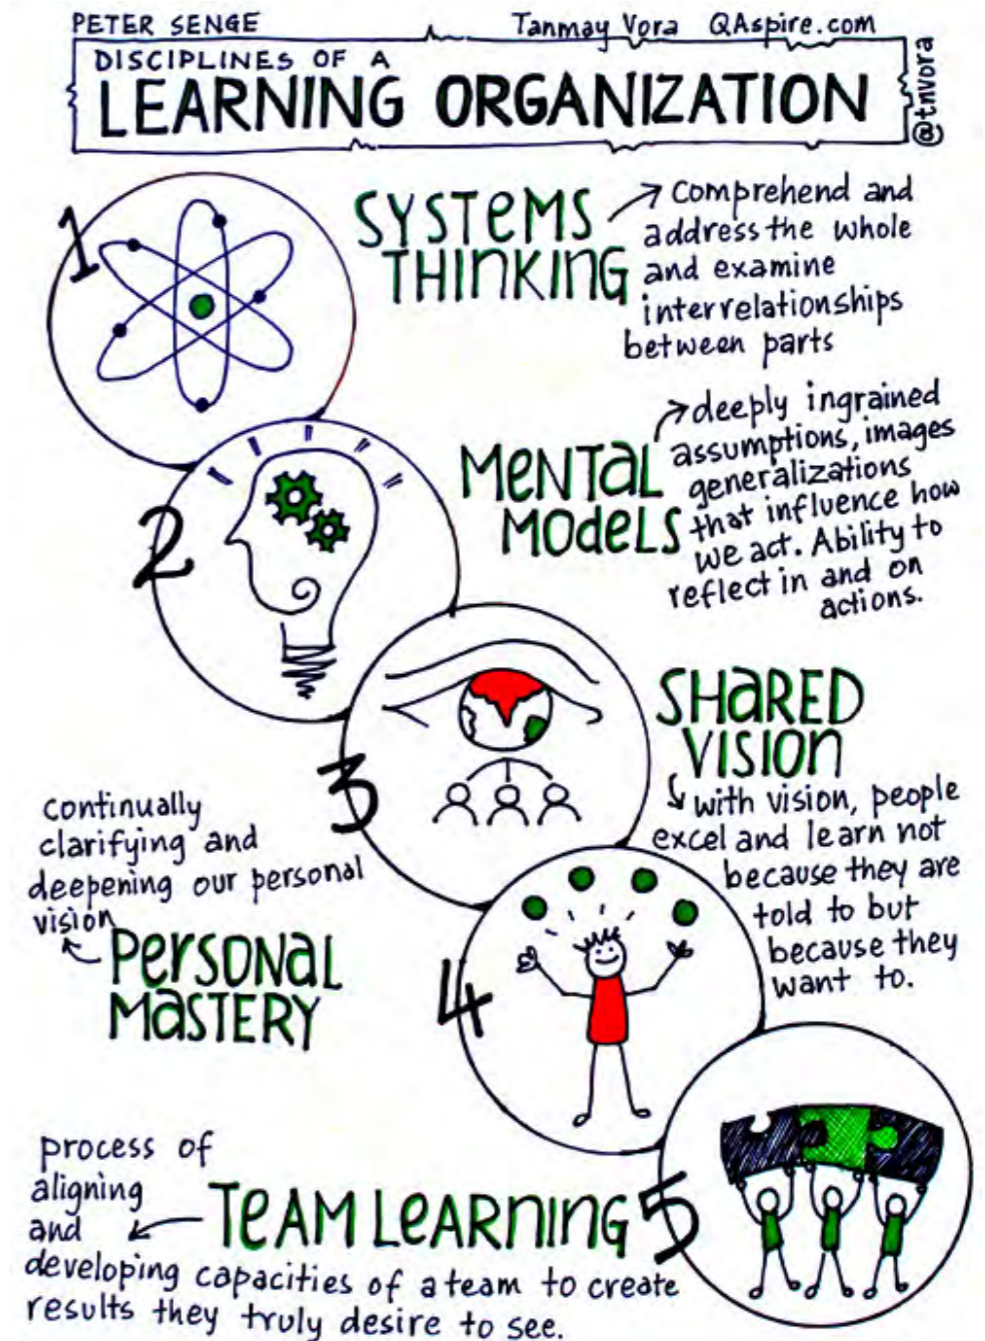 PETER SENGE
Tanmay Vora QAspire.com
@tnvora
DISCIPLINES OF A
LEARNING ORGANIZATION
1
SYSTEMS
THINKING
Comprehend and
address the whole
and examine
interrelationships
between parts
2
MENTAL
MODELS
deeply ingrained
assumptions, images
generalizations
that influence how
we act. Ability to
reflect in and on
actions.
3
SHARED
VISION
with vision, people
excel and learn not
because they are
told to but
because they
want to.
4
continually
clarifying and
deepening our personal
vision
PERSONAL
MASTERY
5
TEAM LEARNING
process of
aligning
and
developing capacities of a team to create
results they truly desire to see.